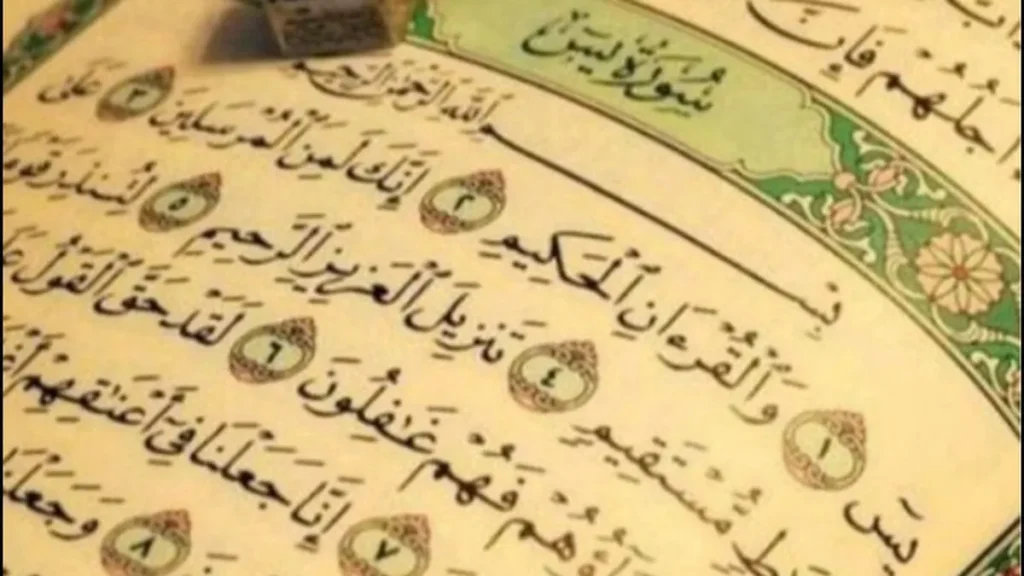 أَجَلُهُمْ فَإِنَّ
سُورَةُ يسٓ
بِسْمِ ٱللَّهِ ٱلرَّحْمَٰنِ ٱلرَّحِيمِ
يسٓ ١ وَٱلْقُرْءَانِ ٱلْحَكِيمِ ٢ إِنَّكَ لَمِنَ ٱلْمُرْسَلِينَ ٣ عَلَىٰ
مُّسْتَقِيمٍ ٤ تَنزِيلَ ٱلْعَزِيزِ ٱلرَّحِيمِ ٥ لِتُنذِرَ قَوْمًا
فَهُمْ غَٰفِلُونَ ٦ لَقَدْ حَقَّ ٱلْقَوْلُ
٧ إِنَّا جَعَلْنَا فِىٓ أَعْنَٰقِهِمْ
٨ وَجَعَلْنَا